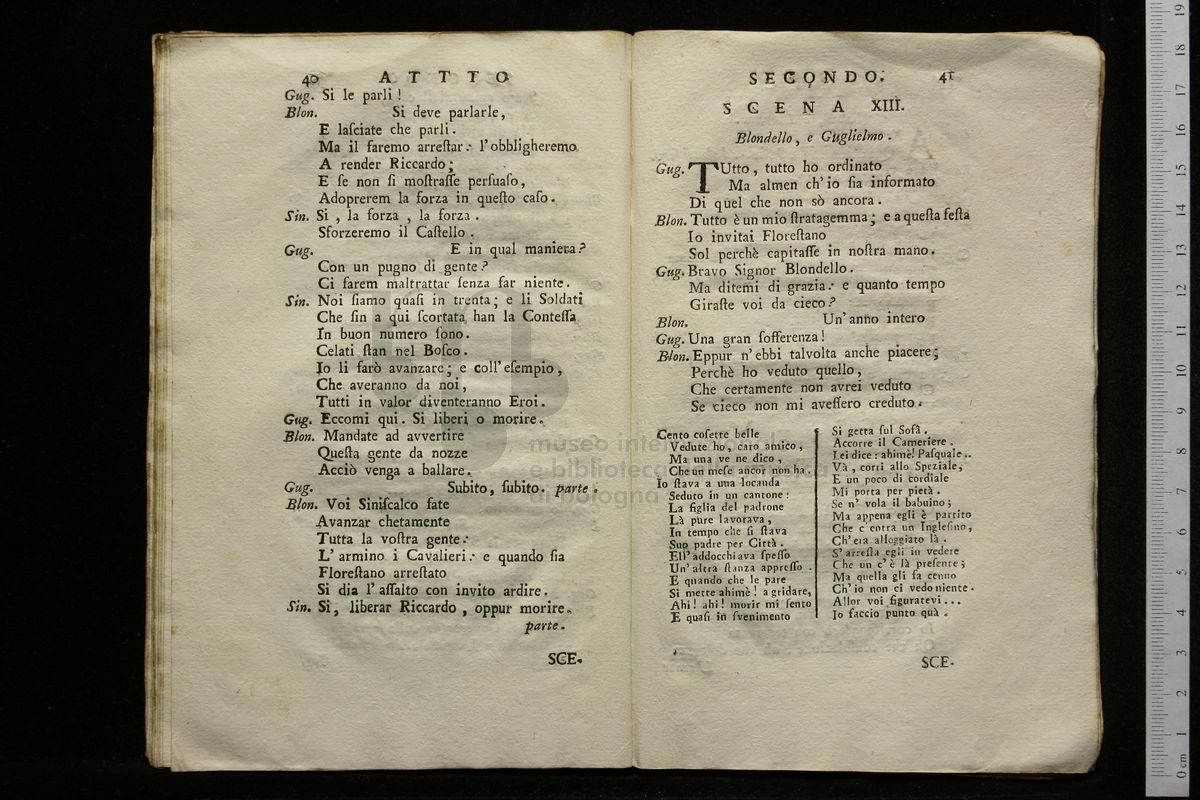 40 ATTTO
Gug. Si le parli!
Blon. Si deve parlarle,
E laſciate che parli.
Ma il faremo arreſtar: l'obbligheremo
A render Riccardo;
E ſe non ſi moſtraſſe perſuaſo,
Adoprerem la forza in queſto caſo.
Sin. Si, la forza, la forza.
Sforzeremo il Caſtello.
Gug. E in qual maniera?
Con un pugno di gente?
Ci farem maltrattar ſenza far niente.
Sin. Noi ſiamo quaſi in trenta; e li Soldati
Che ſin a qui ſcortata han la Conteſſa
In buon numero ſono.
Celati ſtan nel Boſco.
Io li farò avanzare; e coll'eſempio,
Che averanno da noi,
Tutti in valor diventeranno Eroi.
Gug. Eccomi qui. Si liberi o morire.
Blon. Mandate ad avvertire
Queſta gente da nozze
Acciò venga a ballare.
Gug. Subito, ſubito. parte.
Blon. Voi Siniſcalco fate
Avanzar chetamente
Tutta la voſtra gente:
L'armino i Cavalieri: e quando ſia
Floreſtano arreſtato
Si dia l'aſſalto con invito ardire.
Sin. Si, liberar Riccardo, oppur morire.
parte.
SCE-
SECONDO. 41
SCENA XIII.
Blondello, e Guglielmo.
Gug. TUtto, tutto ho ordinato
Ma almen ch'io ſia informato
Di quel che non sò ancora.
Blon. Tutto è un mio ſtratagemma; e a queſta feſta
Io invitai Floreſtano
Sol perchè capitaſſe in noſtra mano.
Gug. Bravo Signor Blondello.
Ma ditemi di grazia: e quanto tempo
Giraſte voi da cieco?
Blon. Un'anno intero
Gug. Una gran ſofferenza!
Blon. Eppur n'ebbi talvolta anche piacere;
Perchè ho veduto quello,
Che certamente non avrei veduto
Se cieco non mi aveſſero creduto.
Cento coſette belle
Vedute ho, caro amico,
Ma una ve ne dico,
Che un meſe ancor non ha.
Io ſtava a una locanda
Seduto in un cantone:
La figlia del padrone
Là pure lavorava,
In tempo che ſi ſtava
Suo padre per Città.
Ell'addocchiava ſpeſſo
Un'altra ſtanza appreſſo.
E quando che le pare
Si mette ahimè! a gridare,
Ahi! ahi! morir mi ſento
E quaſi in ſvenimento
Si getta ſul Sofà.
Accorre il Cameriere.
Lei dice: ahimè! Paſquale..
Và, corri allo Speziale,
E un poco di cordiale
Mi porta per pietà.
Se n'vola il babuino;
Ma appena egli è partito
Che c'entra un Ingleſino,
Ch'era alloggiato là.
S'arreſta egli in vedere
Che un c'è là preſente;
Ma quella gli fa cenno
Ch'io non ci vedo niente.
Allor voi figuratevi...
Io faccio punto quà.
SCE-
museo inte
e biblioteca
di bologna